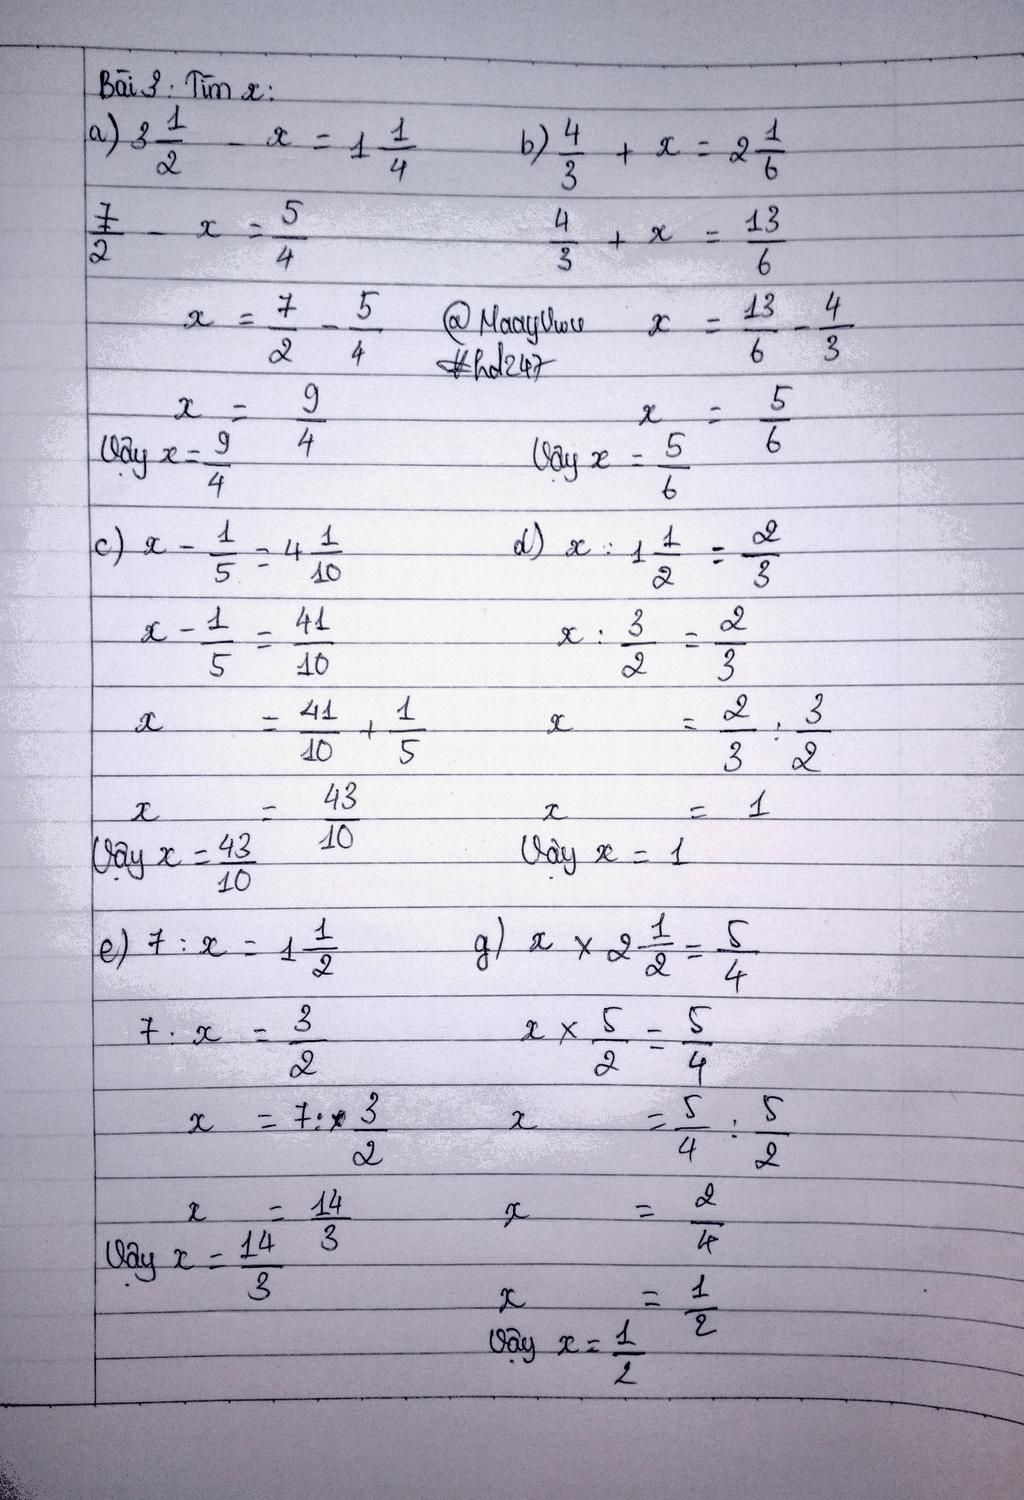 Bài 3: Tìm x:
a) 3 1/2 - x = 1 1/4
7/2 - x = 5/4
x = 7/2 - 5/4
x = 9/4
Vậy x = 9/4
b) 4/3 + x = 2 1/6
4/3 + x = 13/6
x = 13/6 - 4/3
x = 5/6
Vậy x = 5/6
@MaayVwu
#hd247
c) x - 1/5 = 4 1/10
x - 1/5 = 41/10
x = 41/10 + 1/5
x = 43/10
Vậy x = 43/10
d) x : 1 1/2 = 2/3
x : 3/2 = 2/3
x = 2/3 : 3/2
x = 1
Vậy x = 1
e) 7 : x = 1 1/2
7 : x = 3/2
x = 7 : 3/2
x = 14/3
Vậy x = 14/3
g) x × 2 1/2 = 5/4
x × 5/2 = 5/4
x = 5/4 : 5/2
x = 2/4
x = 1/2
Vậy x = 1/2